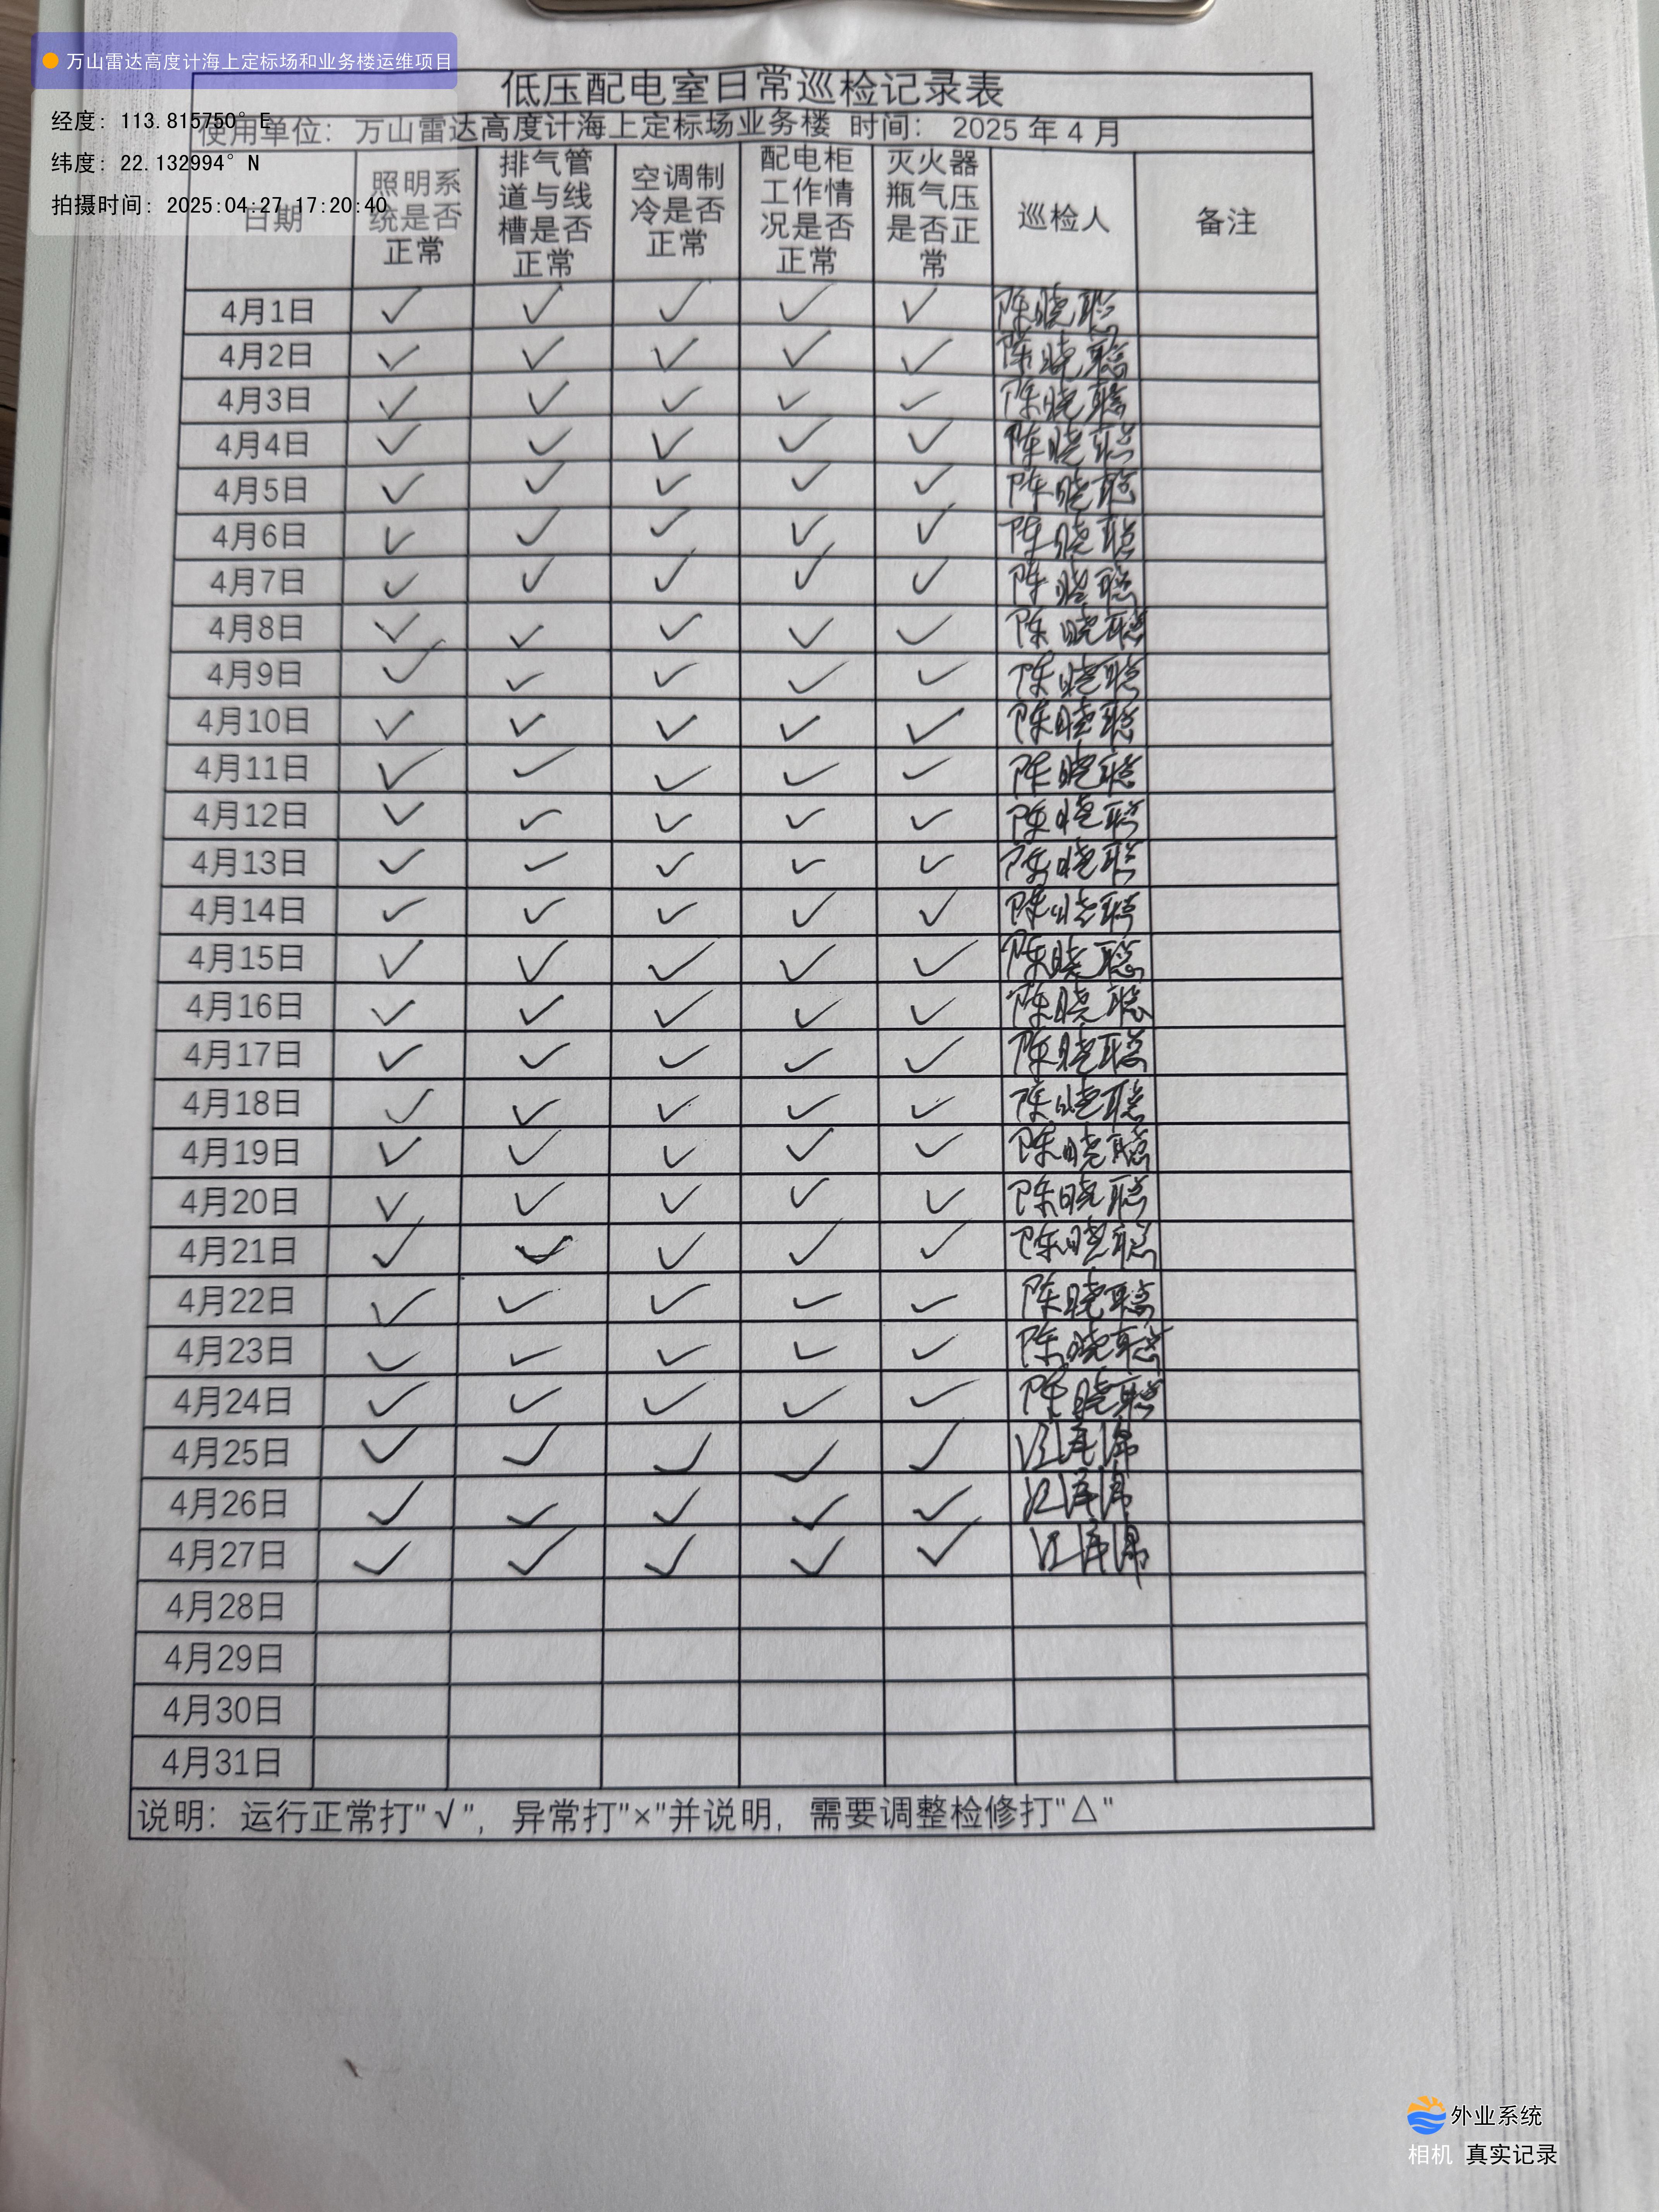 万山雷达高度计海上定标场和业务楼运维项目
经度: 113.815750°E
纬度: 22.132994°N
拍摄时间: 2025:04:27 17:20:40
低压配电室日常巡检记录表
使用单位: 万山雷达高度计海上定标场业务楼 时间: 2025 年 4 月
日期 照明系统是否正常 排气管道与线槽是否正常 空调制冷是否正常 配电柜工作情况是否正常 灭火器瓶气压是否正常 巡检人 备注
4月1日 ✓ ✓ ✓ ✓ ✓ 陈晓聪
4月2日 ✓ ✓ ✓ ✓ ✓ 陈晓聪
4月3日 ✓ ✓ ✓ ✓ ✓ 陈晓聪
4月4日 ✓ ✓ ✓ ✓ ✓ 陈晓聪
4月5日 ✓ ✓ ✓ ✓ ✓ 陈晓聪
4月6日 ✓ ✓ ✓ ✓ ✓ 陈晓聪
4月7日 ✓ ✓ ✓ ✓ ✓ 陈晓聪
4月8日 ✓ ✓ ✓ ✓ ✓ 陈晓聪
4月9日 ✓ ✓ ✓ ✓ ✓ 陈晓聪
4月10日 ✓ ✓ ✓ ✓ ✓ 陈晓聪
4月11日 ✓ ✓ ✓ ✓ ✓ 陈晓聪
4月12日 ✓ ✓ ✓ ✓ ✓ 陈晓聪
4月13日 ✓ ✓ ✓ ✓ ✓ 陈晓聪
4月14日 ✓ ✓ ✓ ✓ ✓ 陈晓聪
4月15日 ✓ ✓ ✓ ✓ ✓ 陈晓聪
4月16日 ✓ ✓ ✓ ✓ ✓ 陈晓聪
4月17日 ✓ ✓ ✓ ✓ ✓ 陈晓聪
4月18日 ✓ ✓ ✓ ✓ ✓ 陈晓聪
4月19日 ✓ ✓ ✓ ✓ ✓ 陈晓聪
4月20日 ✓ ✓ ✓ ✓ ✓ 陈晓聪
4月21日 ✓ ✓ ✓ ✓ ✓ 陈晓聪
4月22日 ✓ ✓ ✓ ✓ ✓ 陈晓聪
4月23日 ✓ ✓ ✓ ✓ ✓ 陈晓聪
4月24日 ✓ ✓ ✓ ✓ ✓ 陈晓聪
4月25日 ✓ ✓ ✓ ✓ ✓
4月26日 ✓ ✓ ✓ ✓ ✓
4月27日 ✓ ✓ ✓ ✓ ✓
4月28日
4月29日
4月30日
4月31日
说明: 运行正常打"√", 异常打"×"并说明, 需要调整检修打"△"
外业系统
相机 真实记录